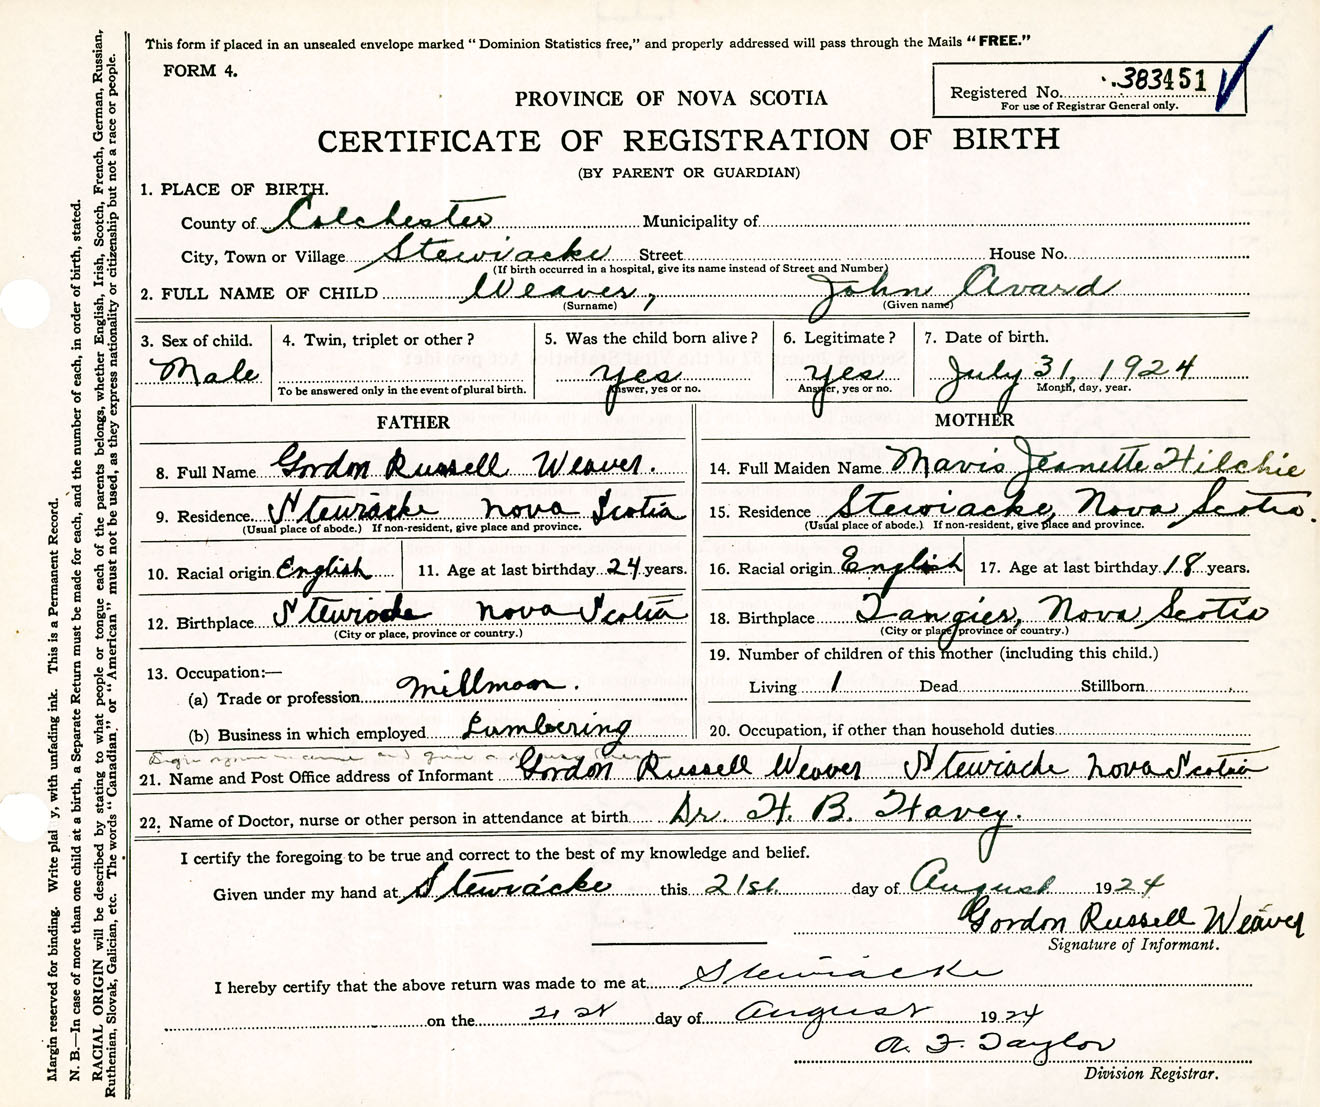 This form if placed in an unsealed envelope marked "Dominion Statistics free," and properly addressed will pass through the Mails "FREE."
FORM 4.
Registered No. 383451
For use of Registrar General only.
PROVINCE OF NOVA SCOTIA
CERTIFICATE OF REGISTRATION OF BIRTH
(BY PARENT OR GUARDIAN)
1. PLACE OF BIRTH.
County of Colchester Municipality of
City, Town or Village Stewiacke Street House No.
(If birth occurred in a hospital, give its name instead of Street and Number)
2. FULL NAME OF CHILD Weaver, John Avard
(Surname) (Given name)
3. Sex of child. 4. Twin, triplet or other? 5. Was the child born alive? 6. Legitimate? 7. Date of birth.
Male yes yes July 31, 1924
To be answered only in the event of plural birth. Answer, yes or no. Answer, yes or no. Month, day, year.
FATHER MOTHER
8. Full Name Gordon Russell Weaver. 14. Full Maiden Name Mavis Jeanette Hilchie
9. Residence Stewiacke Nova Scotia 15. Residence Stewiacke, Nova Scotia.
(Usual place of abode.) If non-resident, give place and province. (Usual place of abode.) If non-resident, give place and province.
10. Racial origin English 11. Age at last birthday 24 years. 16. Racial origin English 17. Age at last birthday 18 years.
12. Birthplace Stewiacke Nova Scotia 18. Birthplace Tangier, Nova Scotia
(City or place, province or country.) (City or place, province or country.)
13. Occupation:— 19. Number of children of this mother (including this child.)
(a) Trade or profession Millman. Living 1 Dead Stillborn
(b) Business in which employed Lumbering 20. Occupation, if other than household duties
21. Name and Post Office address of Informant Gordon Russell Weaver Stewiacke Nova Scotia
22. Name of Doctor, nurse or other person in attendance at birth Dr. H. B. Havey.
I certify the foregoing to be true and correct to the best of my knowledge and belief.
Given under my hand at Stewiacke this 21st day of August 1924
Gordon Russell Weaver
Signature of Informant.
I hereby certify that the above return was made to me at Stewiacke
on the 21st day of August 1924
A. F. Taylor
Division Registrar.
Margin reserved for binding. Write plai y, with unfading ink. This is a Permanent Record.
N. B.—In case of more than one child at a birth, a Separate Return must be made for each, and the number of each, in order of birth, stated.
RACIAL ORIGIN will be described by stating to what people or tongue each of the parents belongs, whether English, Irish, Scotch, French, German, Russian,
Ruthenian, Slovak, Galician, etc. The words "Canadian," or "American" must not be used, as they express nationality or citizenship but not a race or people.